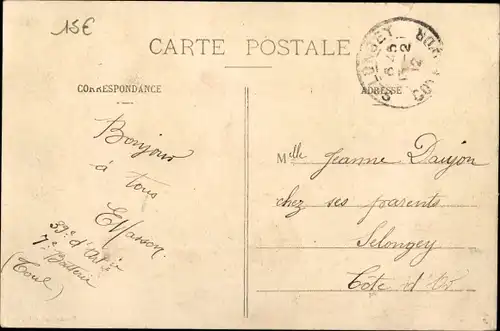 15€
CARTE POSTALE
CORRESPONDANCE
ADRESSE
SELONGEY
6-45
-2
12
CÔTE D'OR
Bonjour
à tous
EMasson
39e d'Art
7e Batterie
(Toul)
Melle Jeanne Daujon
chez ses parents
Selongey
Côte d'Or